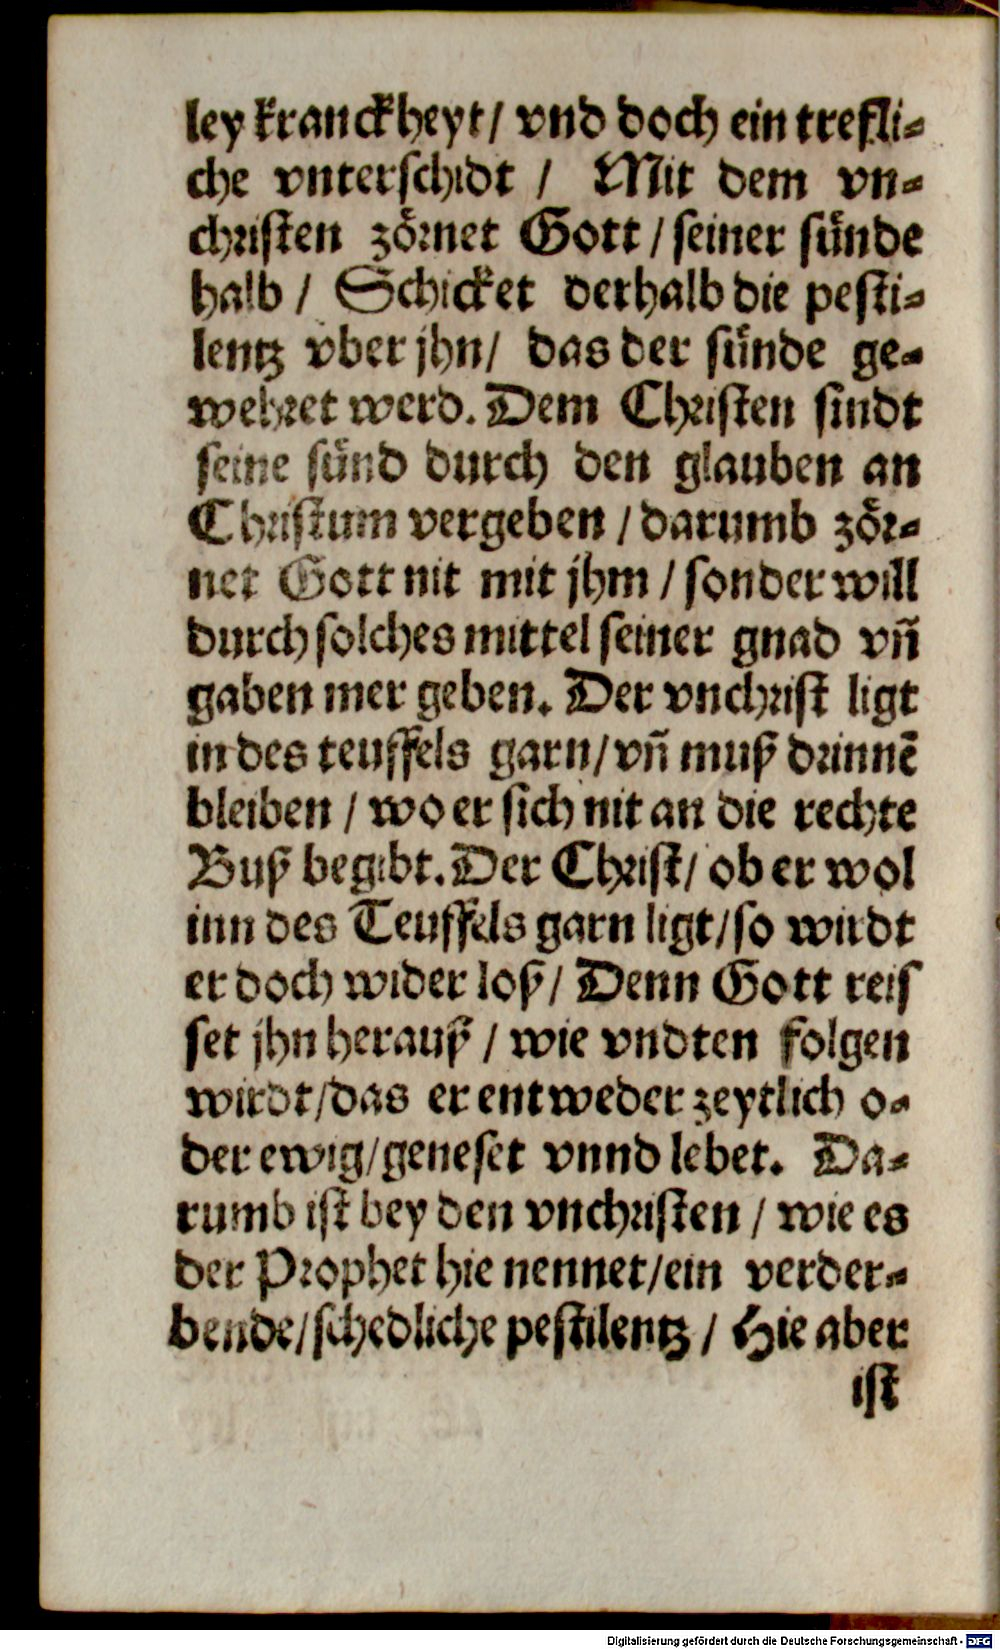 ley kranckheyt / vnd doch ein trefli⸗
che vnterschidt / Mit dem vn⸗
christen zörnet Gott / seiner sünde
halb / Schicket derhalb die pesti⸗
lentz vber jhn / das der sünde ge⸗
wehret werd. Dem Christen sindt
seine sünd durch den glauben an
Christum vergeben / darumb zör⸗
net Gott nit mit jhm / sonder will
durch solches mittel seiner gnad vñ
gaben mer geben. Der vnchrist ligt
in des teuffels garn / vñ muß drinnē
bleiben / wo er sich nit an die rechte
Buß begibt. Der Christ / ob er wol
inn des Teuffels garn ligt / so wirdt
er doch wider loß / Denn Gott reis
set jhn herauß / wie vndten folgen
wirdt / das er entweder zeytlich o⸗
der ewig / geneset vnnd lebet. Da⸗
rumb ist bey den vnchristen / wie es
der Prophet hie nennet / ein verder⸗
bende / schedliche pestilentz / Hie aber
ist
Digitalisierung gefördert durch die Deutsche Forschungsgemeinschaft - DFG